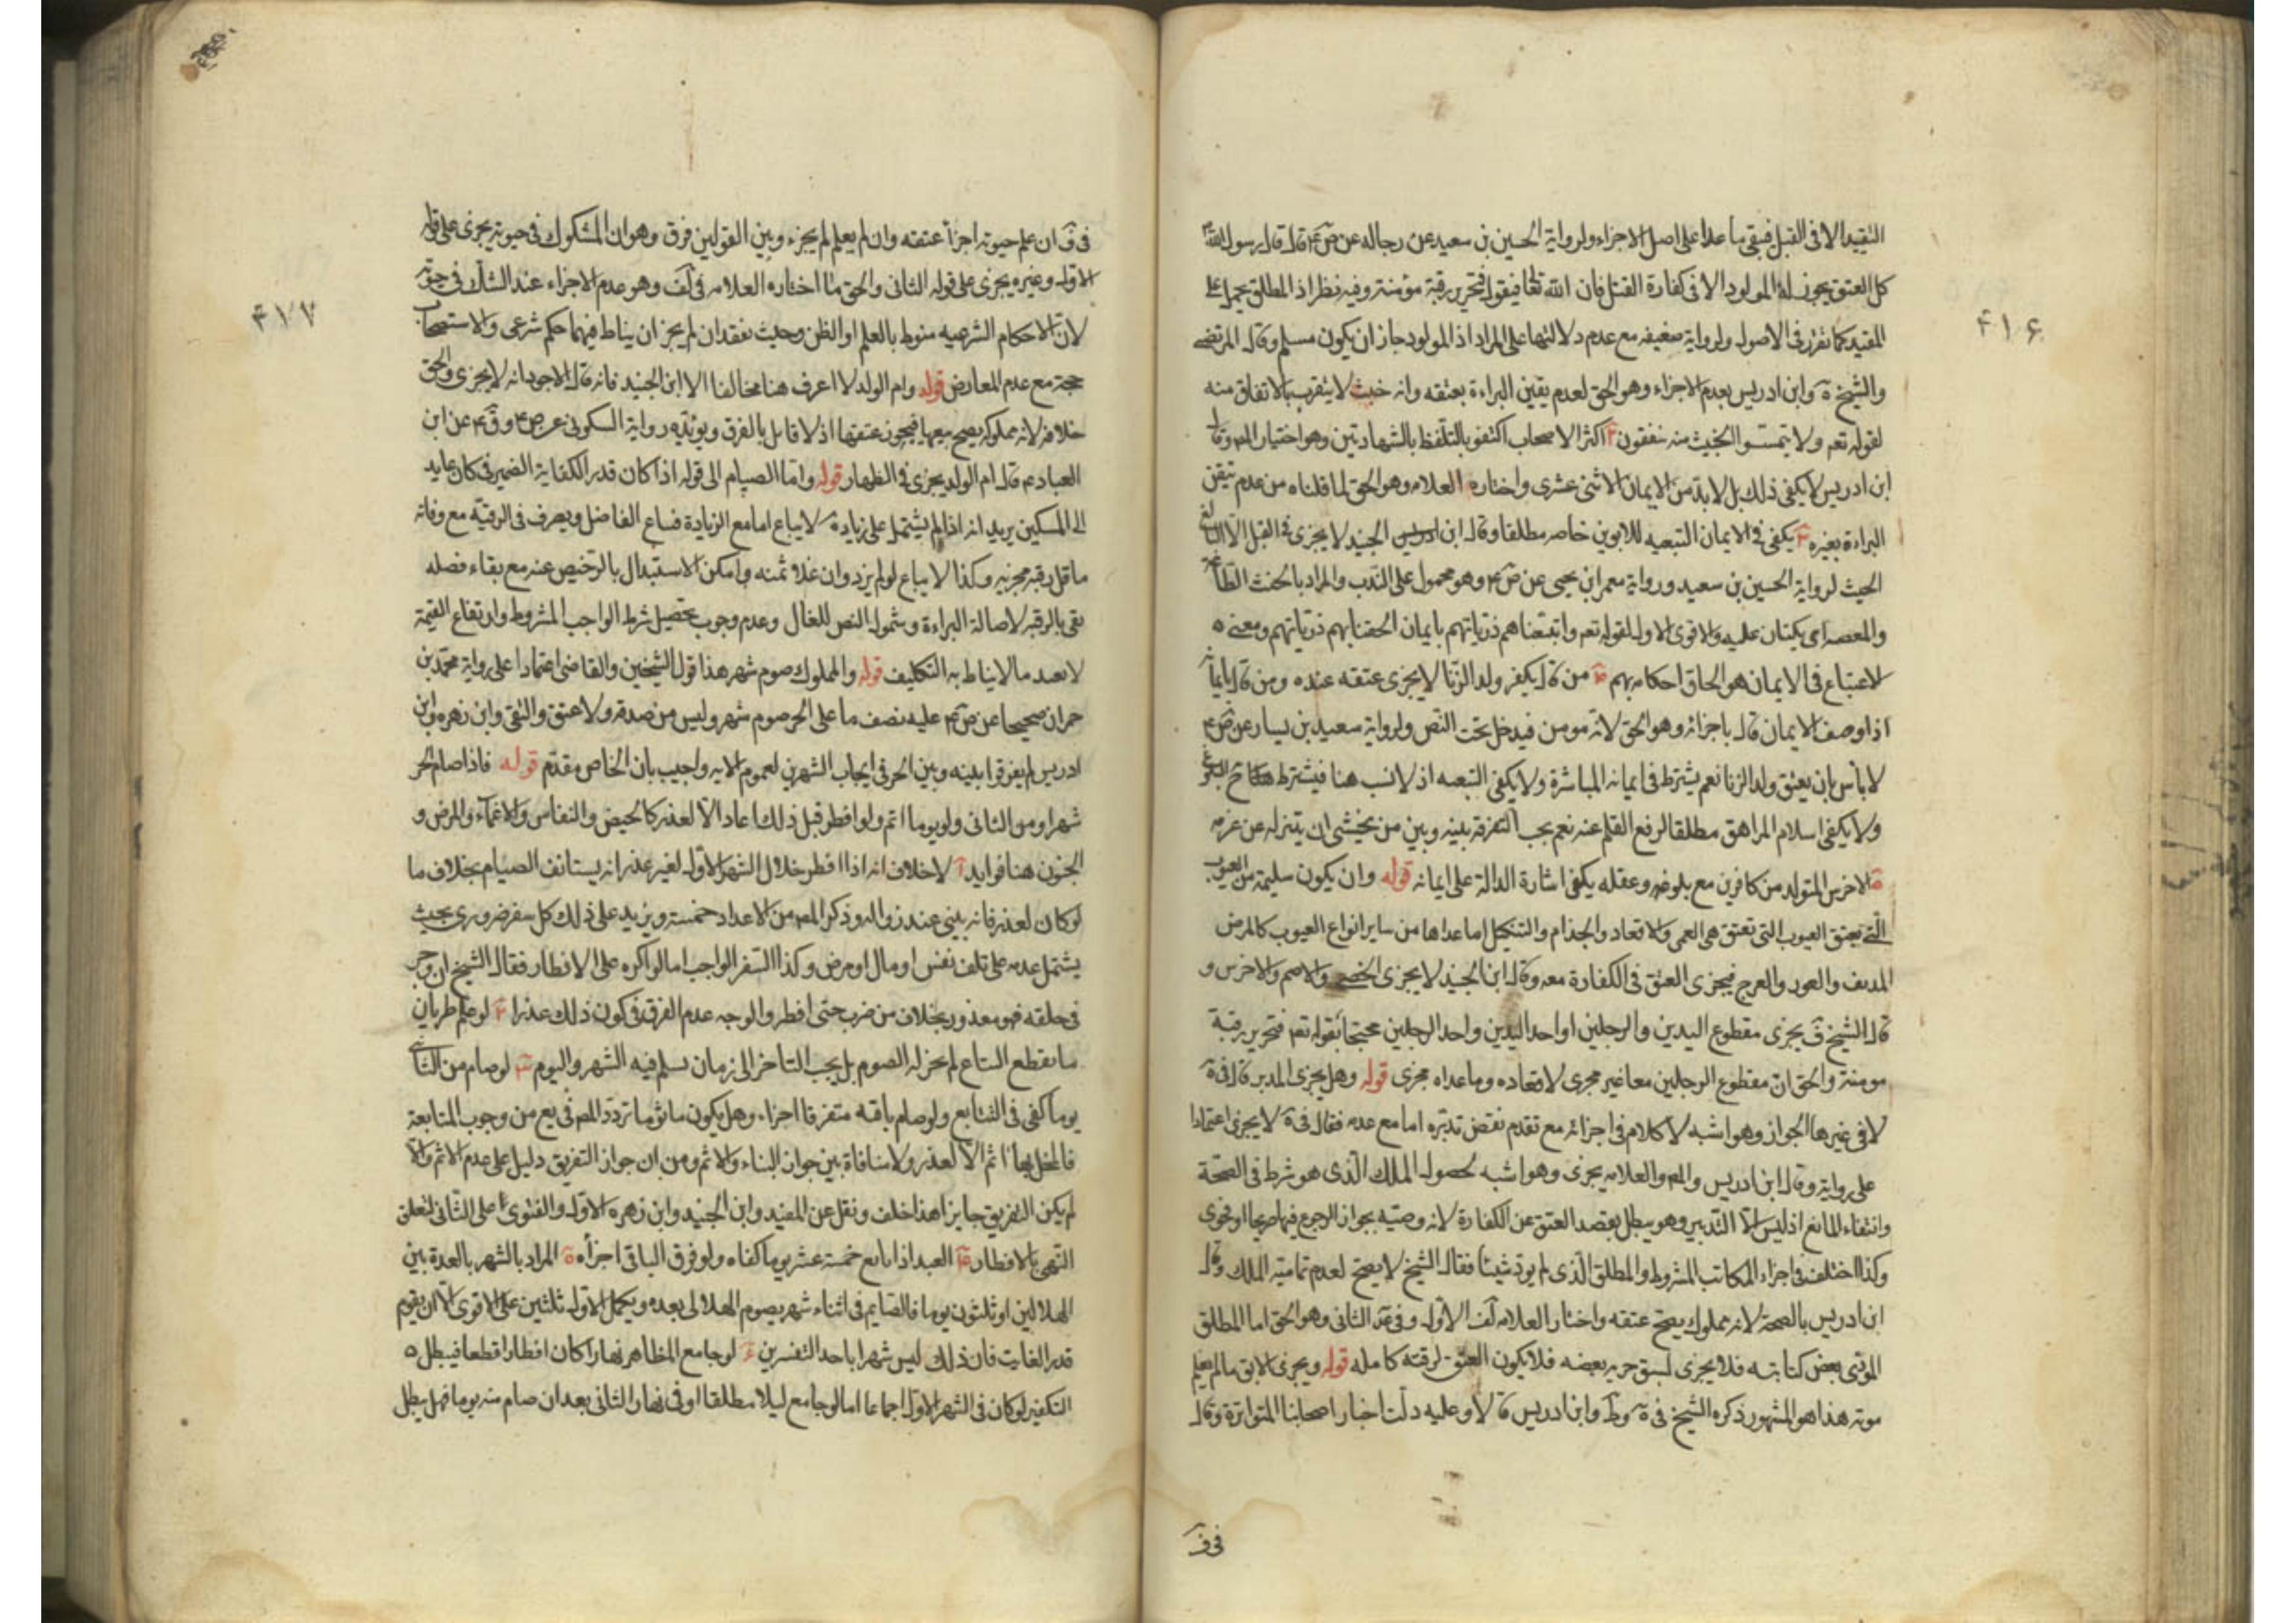 التقييد الا فى القتل فيبقى ما عداه على اصل الاجزاء ولرواية الحسين بن سعيد عن رجاله عن ص ع قال قال رسول الله
كل العتق يجوز له المولود الا فى كفارة القتل فان الله تعا فيقول فتحرير رقبة مؤمنة وفيه نظر اذ المطلق يحمل على
المقيد كما تقرر فى الاصول والرواية ضعيفه مع عدم دلالتها على المراد اذ المولود جاز ان يكون مسلم وقال المرتضى
والشيخ وابن ادريس بعدم الاجزاء وهو الحق لعدم يقين البراءة بعتقه وانه خبث لا يتقرب بالاتفاق منه
لقوله تعم ولا تيمموا الخبيث منه تنفقون اكثر الاصحاب اكتفو بالتلفظ بالشهادتين وهو اختيار المص وقال
ابن ادريس لا يكفى ذلك بل لا بد من الايمان الاثنى عشرى واختاره العلامه وهو الحق لما قلناه من عدم تيقن
البراءة بغيره يكفى فى الايمان التبعيه للابوين خاصه مطلقا وقال ابن الجنيد لا يجزى فى القتل الا البالغ
الحنث لرواية الحسين بن سعيد ورواية معمر ابن يحيى عن ص ع وهو محمول على الندب والمراد بالحنث الطاعة
والمعصه اى يكتبان عليه والاقوى الاول لقوله تعم واتبعناهم ذرياتهم بايمان الحقنا بهم ذرياتهم ومعنى
الاتباع فى الايمان هو الحاق احكامه بهم من قال بكفر ولد الزنا لا يجزى عتقه عنده ومن قال بايمانه
اذا وصف الايمان قال باجزائه وهو الحق لانه مومن فيدخل تحت النص ولرواية سعيد بن يسار عن ص ع
لا بأس بان يعتق ولد الزنا نعم يشترط فى ايمانه المباشرة ولا يكفى التبعيه اذ لا نسب هنا فيشترط ح البلوغ
ولا يكفى اسلام المراهق مطلقا لرفع القلم عنه نعم يجب التفرقة بينه وبين من يخشى ان يتنزله عن عزمه
الاخرس المتولد من كافرين مع بلوغه وعقله يكفى اشارة الدالة على ايمانه قوله وان يكون سليمة من العيوب
التى يعتق العيوب التى تعتق هى العمى والاقعاد والجذام والتنكيل اما عداها من ساير انواع العيوب كالمرض
المدنف والعور والعرج فيجزى العتق فى الكفارة معه وقال ابن الجنيد لا يجزى الخصى والاصم والاخرس و
قال الشيخ ف يجزى مقطوع اليدين والرجلين او احد اليدين واحد الرجلين محتجا بقوله تعم فتحرير رقبة
مومنة والحق ان مقطوع الرجلين معا غير مجزى لاقعاده وما عداه مجزى قوله وهل يجزى المدبر قال فى ة
لا فى غيرها الجواز وهو اشبه لا كلام فى اجزائه مع تقدم نقض تدبيره اما مع عدمه فقال فى ة لا يجزى اعتمادا
على رواية وقال ابن ادريس والمص والعلامه يجزى وهو اشبه لحصول الملك الذى هو شرط فى الصحة
وانتفاء المانع اذ ليس الا التدبير وهو يبطل بقصد العتق عن الكفارة لانه وصيه بجواز الرجوع فيها صريحا او فحوى
وكذا اختلف فى اجزاء المكاتب المشروط والمطلق الذى لم يود شيئا فقال الشيخ لا يصح لعدم تمامية الملك وقال
ابن ادريس بالصحة لانه مملوك يصح عتقه واختار العلامه لف الاول وفى عد الثانى وهو الحق اما المطلق
الموتى بعض كتابته فلا يجزى لسبق حريه بعضه فلا يكون العتق لرقبة كامله قوله ويجزى الابق ما لم يعلم
موته هذا هو المشهور ذكره الشيخ فى ة وط وابن ادريس قالا وعليه دلت اخبار اصحابنا المتواترة وقال
فى ف
۴۱۶
فى ف ان علم حيوته اجزأ عتقه وان لم يعلم لم يجزء وبين القولين فرق وهو ان المشكوك فى حيوته يجزى على قوله
الاول وغيره يجزى على قوله الثانى والحق ما اختاره العلامه فى لف وهو عدم الاجزاء عند الشك فى حيوته
لان الاحكام الشرعيه منوط بالعلم او الظن وحيث نفقد ان لم يجز ان يناط فيهما حكم شرعى والاستصحاب
حجة مع عدم المعارض قوله وام الولد لا اعرف هنا مخالفا الا ابن الجنيد فانه قال الاجود انه لا يجزى والحق
خلافه لانه مملوكه يصح بيعها فيجوز عتقها اذ لا قايل بالفرق ويؤيده رواية السكونى عن ص ع وق ع عن ابن
العباد ع قال ام الولد يجزى فى الظهار قوله واما الصيام الى قوله اذا كان قدر الكفاية الضمير فى كان عايد
الى المسكين يريد انه اذا لم يشتمل على زيادة لا يباع اما مع الزيادة فساع الفاضل ويصرف فى الرقبة مع وفائه
ما قل رقبة مجزيه وكذا لا يباع لو لم يزد وان غلا ثمنه وامكن الاستبدال بالرخيص عنه مع بقاء فضله
تفى بالرقبه لاصالة البراءة وشمول النص للغال وعدم وجوب تحصيل شرط الواجب المشروط وارتفاع القيمة
لا تعد مالا يناط به التكليف قوله والمملوك صوم شهر هذا قول الشيخين والقاضى اعتمادا على رواية محمد بن
حمران صحيحا عن ص ع عليه نصف ما على الحر صوم شهر وليس من صدقه ولا عتق والتقى وابن زهره وابن
ادريس لم يفرقوا بينه وبين الحر فى ايجاب الشهرين لعموم الايه واجيب بان الخاص مقدم قوله فاذا صام الحر
شهرا ومن الثانى ولو يوما اتم ولو افطر قبل ذلك اعاد الا لعذر كالحيض والنفاس والاغماء والمرض و
الجنون هنا فوايد آ لا خلاف انه اذا افطر خلال الشهر الاول لغير عذر انه يستانف الصيام بخلاف ما
لو كان لعذر فانه يبنى عند زواله وذكر المص من الاعداد خمسة ويزيد على ذلك كل سفر ضرورى بحيث
يشتمل عدمه على تلف نفس او مال او مرض وكذا السفر الواجب اما لو اكره على الافطار فقال الشيخ ان وجر
فى حلقه فهو معذور بخلاف من ضرب حتى افطر والوجه عدم الفرق فى كون ذلك عذرا لو علم طريان
ما يقطع التتابع لم يجز له الصوم بل يجب التاخر الى زمان يسلم فيه الشهر واليوم لو صام من الثانى
يوما كفى فى التتابع ولو صام باقيه متفرقا اجزاء وهل يكون ماثوما تردد المص فى يع من وجوب المتابعة
فالمخل بها اثم الا لعذر ولا منافاة بين جواز البناء والاثم ومن ان جواز التفريق دليل على عدم الاثم والا
لم يكن التفريق جايزا هذا خلف ونقل عن المفيد وابن الجنيد وابن زهره الاول والفتوى على الثانى لتعلق
النهى بالافطار العبد اذا تابع خمسة عشر يوما كفاه ولو فرق الباقى اجزأه ة المراد بالشهر بالعدة بين
الهلالين او ثلثون يوما فالصايم فى اثناء شهر يصوم الهلالى بعده ويكمل الاول ثلثين على الاقوى الا ان يقوم
قدر الغايت فان ذلك ليس شهرا باحد التفسرين لو جامع المظاهر نهارا كان افطارا قطعا فيبطل
التكفير لو كان فى الشهر الاول اجماعا اما لو جامع ليلا مطلقا او فى نهار الثانى بعد ان صام منه يوما فهل يبطل
۴۱۷